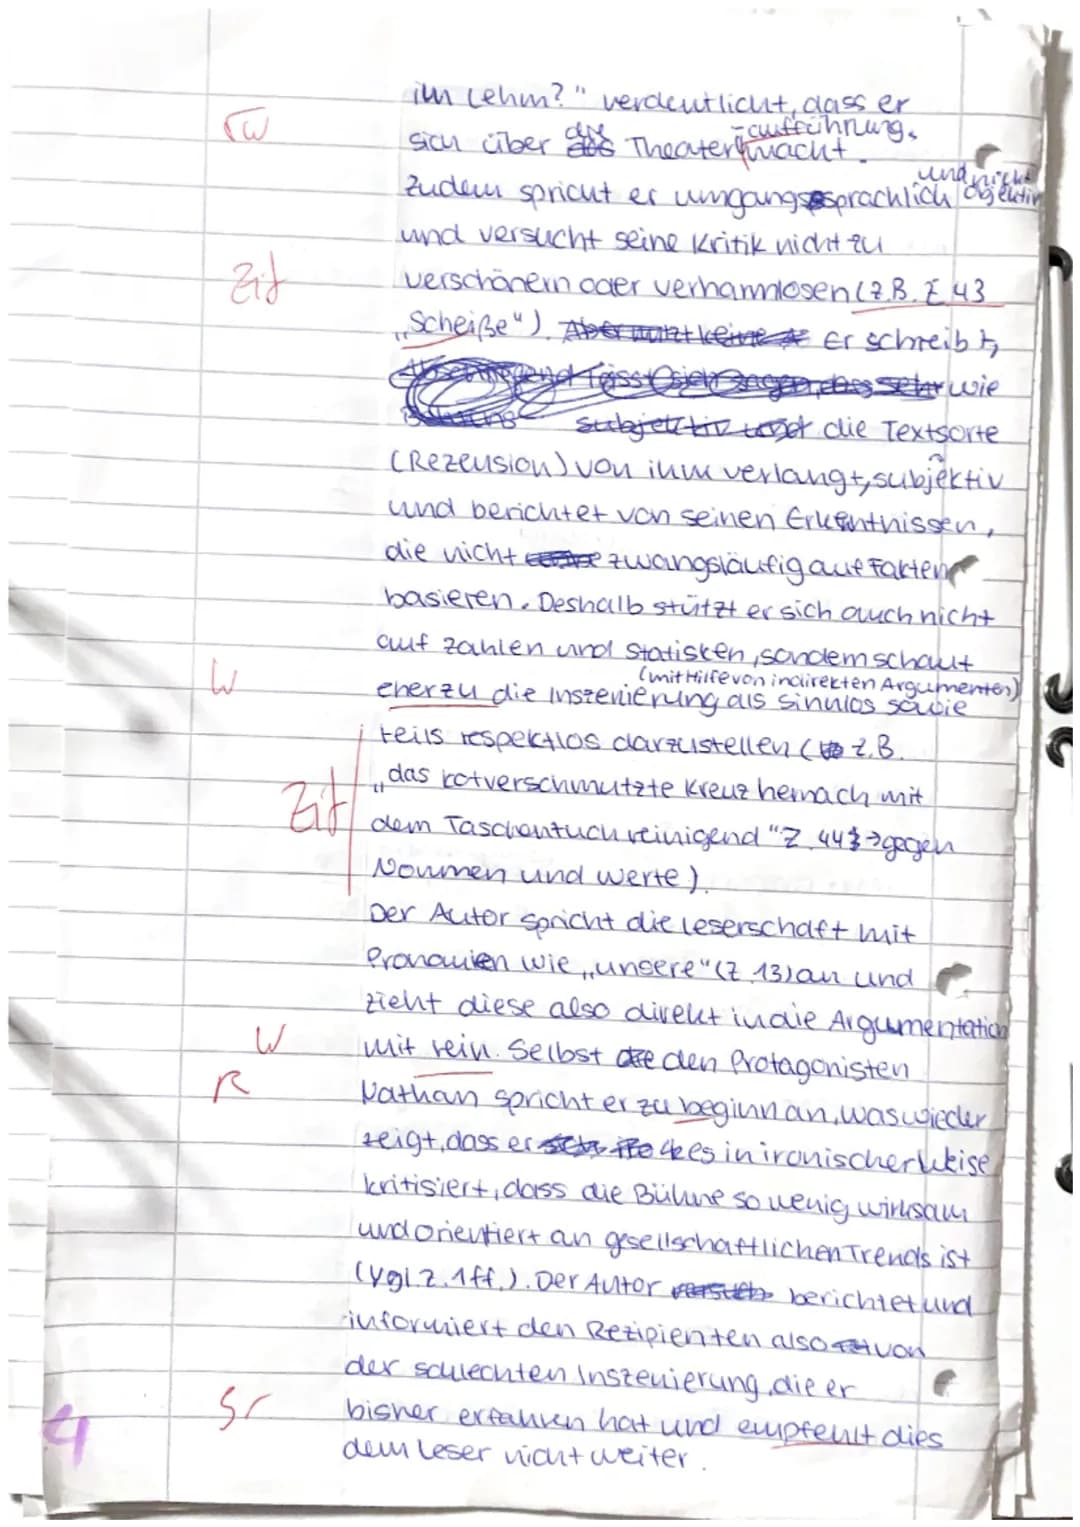 im Lehm?" verdeutlicht, dass er
√W
sich über die Theateraufführung
macht.
Zudem spricht er umgangssprachlich und nicht objektiv
und versucht seine Kritik nicht zu
Zit
verschönern oder verharmlosen (z.B. Z 43
„Scheiße"). Er schreibt,
wie
subjektiv die Textsorte
(Rezension) von ihm verlangt, subjektiv
und berichtet von seinen Erkentnissen,
die nicht zwangsläufig auf Fakten
basieren. Deshalb stützt er sich auch nicht
auf Zahlen und Statisken, sondern schaut
W
(mit Hilfe von indirekten Argumenten)
eher zu die Inszenierung als sinnlos sowie
teils respektlos darzustellen (z.B.
„das kotverschmutzte Kreuz hernach mit
Zit
dem Taschentuch reinigend" Z. 44 → gegen
Nommen und Werte).
Der Autor spricht die Leserschaft mit
Pronomien wie „unsere" (Z. 13) an und
zieht diese also direkt in die Argumentation
W
mit rein. Selbst den Protagonisten
R
Nathan spricht er zu beginn an, was wieder
zeigt, dass er es in ironischer Weise
kritisiert, dass die Bühne so wenig wirksam
und orientiert an gesellschaftlichen Trends ist
(Vgl. Z. 1ff.). Der Autor berichtet und
informiert den Rezipienten also von
der schlechten Inszenierung, die er
Sr
bisher erfahren hat und empfehlt dies
dem Leser nicht weiter.
4